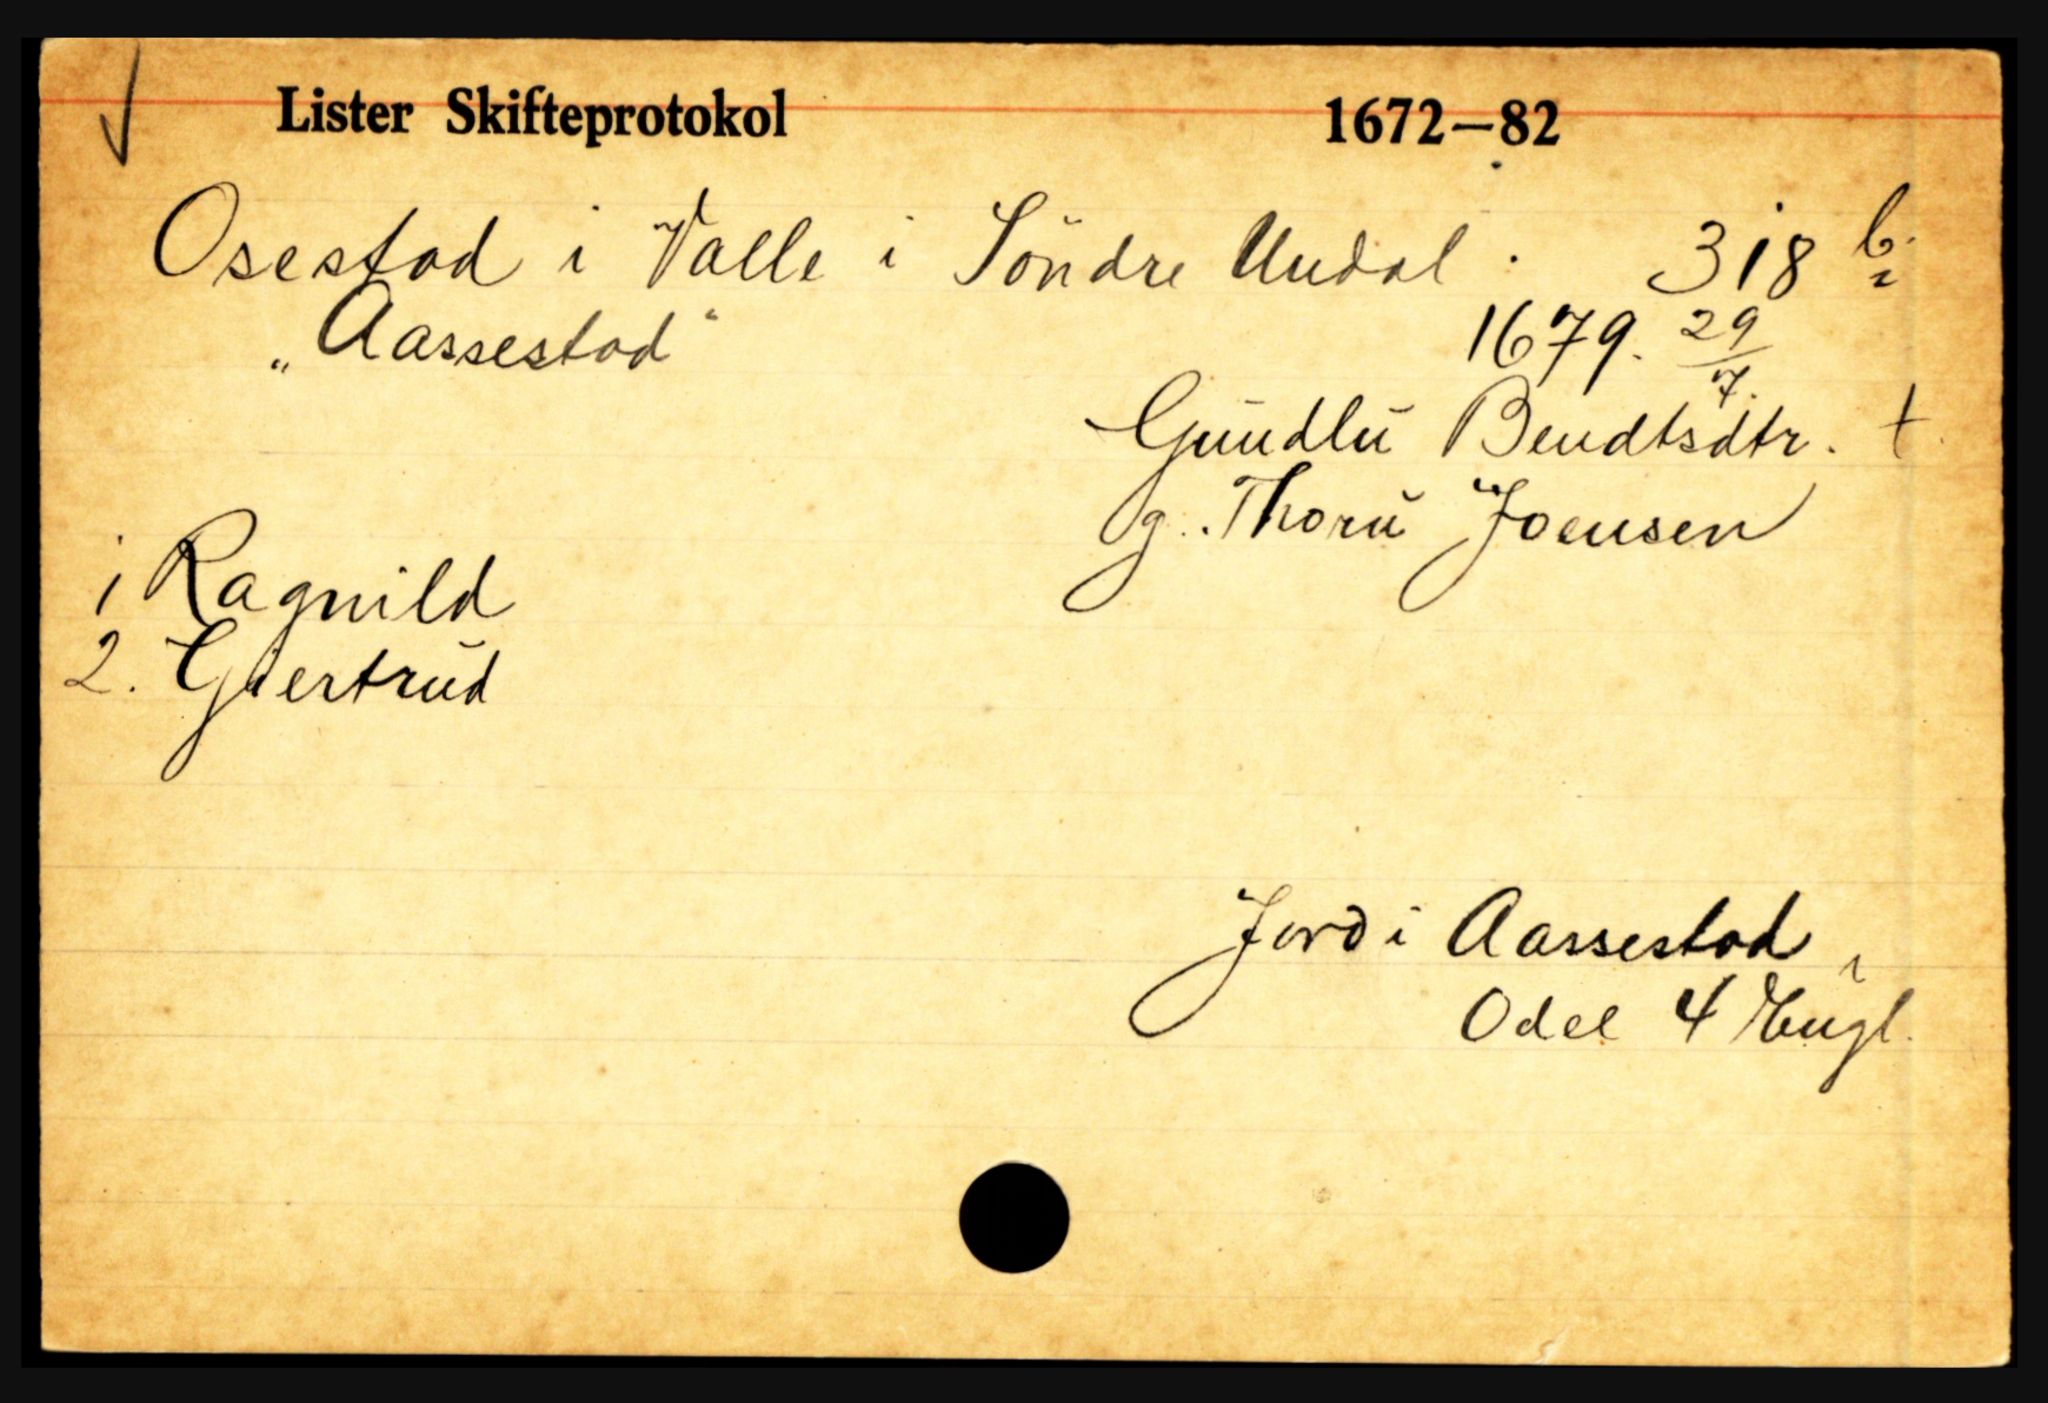 Lister Skifteprotokol 1672–82
Osestad i Valle i Söndre Undal. 318 b.
"Aassestad" 1679. 29/7.
Gundlu Bendtsdtr. †
g. Thoru Joensen
1 Ragnild
2. Giertrud
Jord i Aassestad,
Odel 4 Eugl.